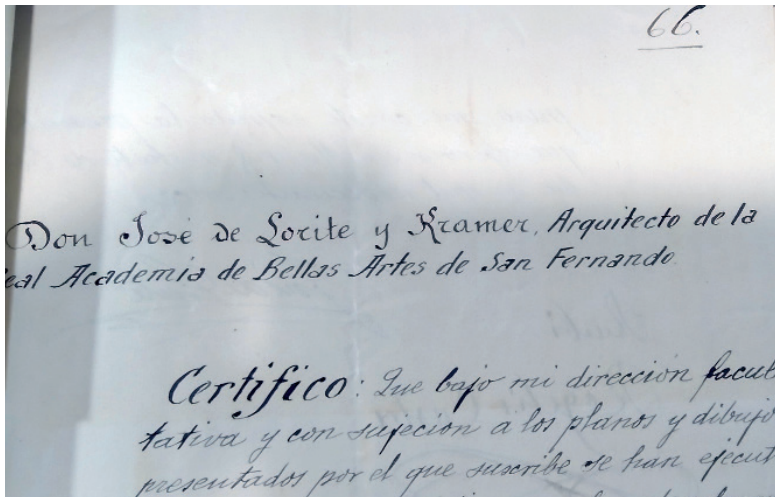 66.
Don José de Lorite y Kramer, Arquitecto de la
eal Academia de Bellas Artes de San Fernando
Certifico: Que bajo mi dirección facul
tativa y con sujecion a los planos y dibujo
presentados por el que suscribe se han ejecut